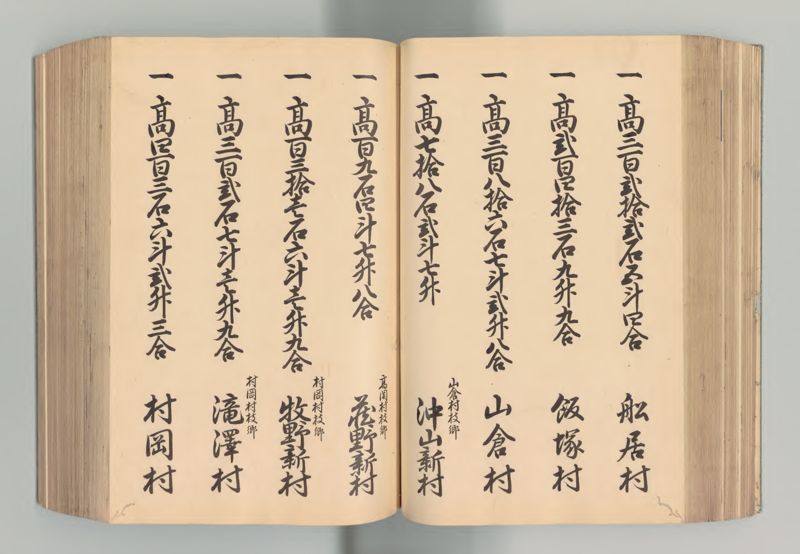 一 高三百弐拾弐石五斗四合 船居村
一 高弐百四拾三石九升九合 飯塚村
一 高三百八拾六石七斗弐升八合 山倉村
一 高七拾八石弐斗七升 山倉村枝郷 沖山新村
一 高百九石四斗七升八合 高関村枝郷 荒野新村
一 高百三拾壱石六斗壱升九合 村岡村枝郷 牧野新村
一 高三百弐石七斗壱升九合 村岡村枝郷 滝澤村
一 高四百三石六斗弐升三合 村岡村